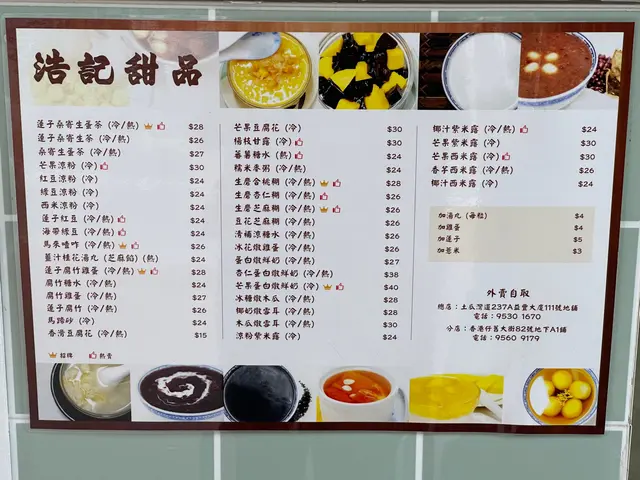 浩記甜品
蓮子桑寄生蛋茶 (冷/熱) $28
蓮子桑寄生茶 (冷/熱) $26
桑寄生蛋茶 (冷/熱) $27
芒果涼粉 (冷) $30
紅豆涼粉 (冷) $24
綠豆涼粉 (冷) $24
西米涼粉 (冷) $24
蓮子紅豆 (冷/熱) $24
海帶綠豆 (冷/熱) $24
馬來喳咋 (冷/熱) $26
薑汁桂花湯丸 (芝麻餡) (熱) $24
蓮子腐竹雞蛋 (冷/熱) $28
腐竹糖水 (冷/熱) $24
腐竹雞蛋 (冷/熱) $27
蓮子腐竹 (冷/熱) $26
馬蹄砂 (冷) $24
香滑豆腐花 (冷/熱) $15
招牌 熱賣
芒果豆腐花 (冷) $30
楊枝甘露 (冷) $30
蕃薯糖水 (熱) $24
糯米麥粥 (冷/熱) $24
生磨合桃糊 (冷/熱) $28
生磨杏仁糊 (冷/熱) $26
生磨芝麻糊 (冷/熱) $26
豆花芝麻糊 (冷/熱) $26
清補涼糖水 (冷/熱) $26
冰花燉雞蛋 (冷/熱) $26
蛋白燉鮮奶 (冷/熱) $27
杏仁蛋白燉鮮奶 (冷/熱) $38
芒果蛋白燉鮮奶 (冷) $40
冰糖燉木瓜 (冷/熱) $28
椰奶燉雪耳 (冷/熱) $28
木瓜燉雪耳 (冷/熱) $30
涼粉紫米露 (冷) $24
椰汁紫米露 (冷/熱) $24
芒果紫米露 (冷) $30
芒果西米露 (冷) $30
香芋西米露 (冷/熱) $26
椰汁西米露 (冷) $24
加湯丸 (每粒) $4
加雞蛋 $4
加蓮子 $5
加薏米 $3
外賣自取
總店：土瓜灣道237A益豐大廈111號地舖
電話：9530 1670
分店：香港仔舊大街82號地下A1舖
電話：9560 9179